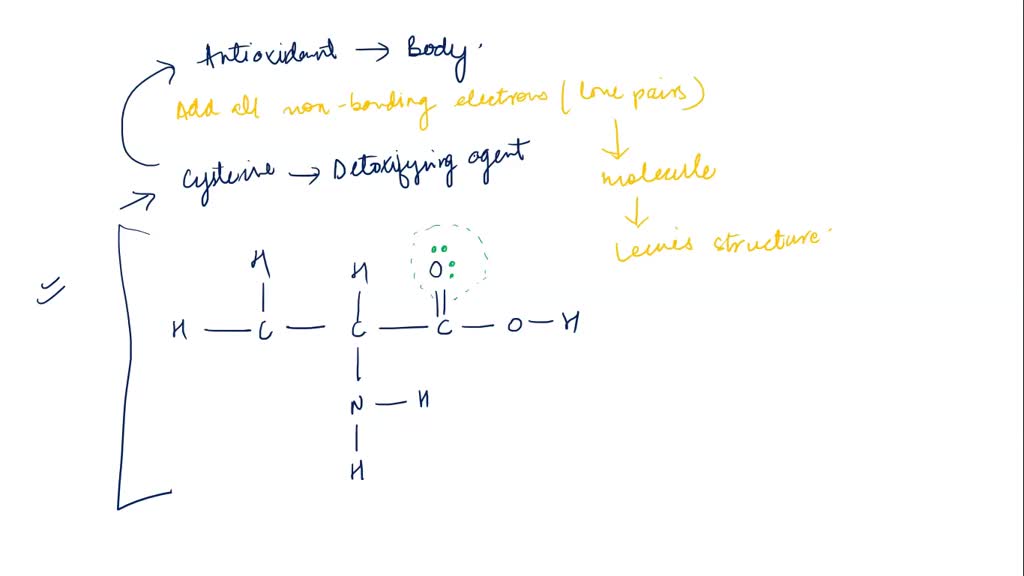 Antioxidant → Body.
Add all non-bonding electrons (lone pairs)
Cysteine → Detoxifying agent
molecule
Lewis structure.
H H O
H — C — C — C — O — H
N — H
H